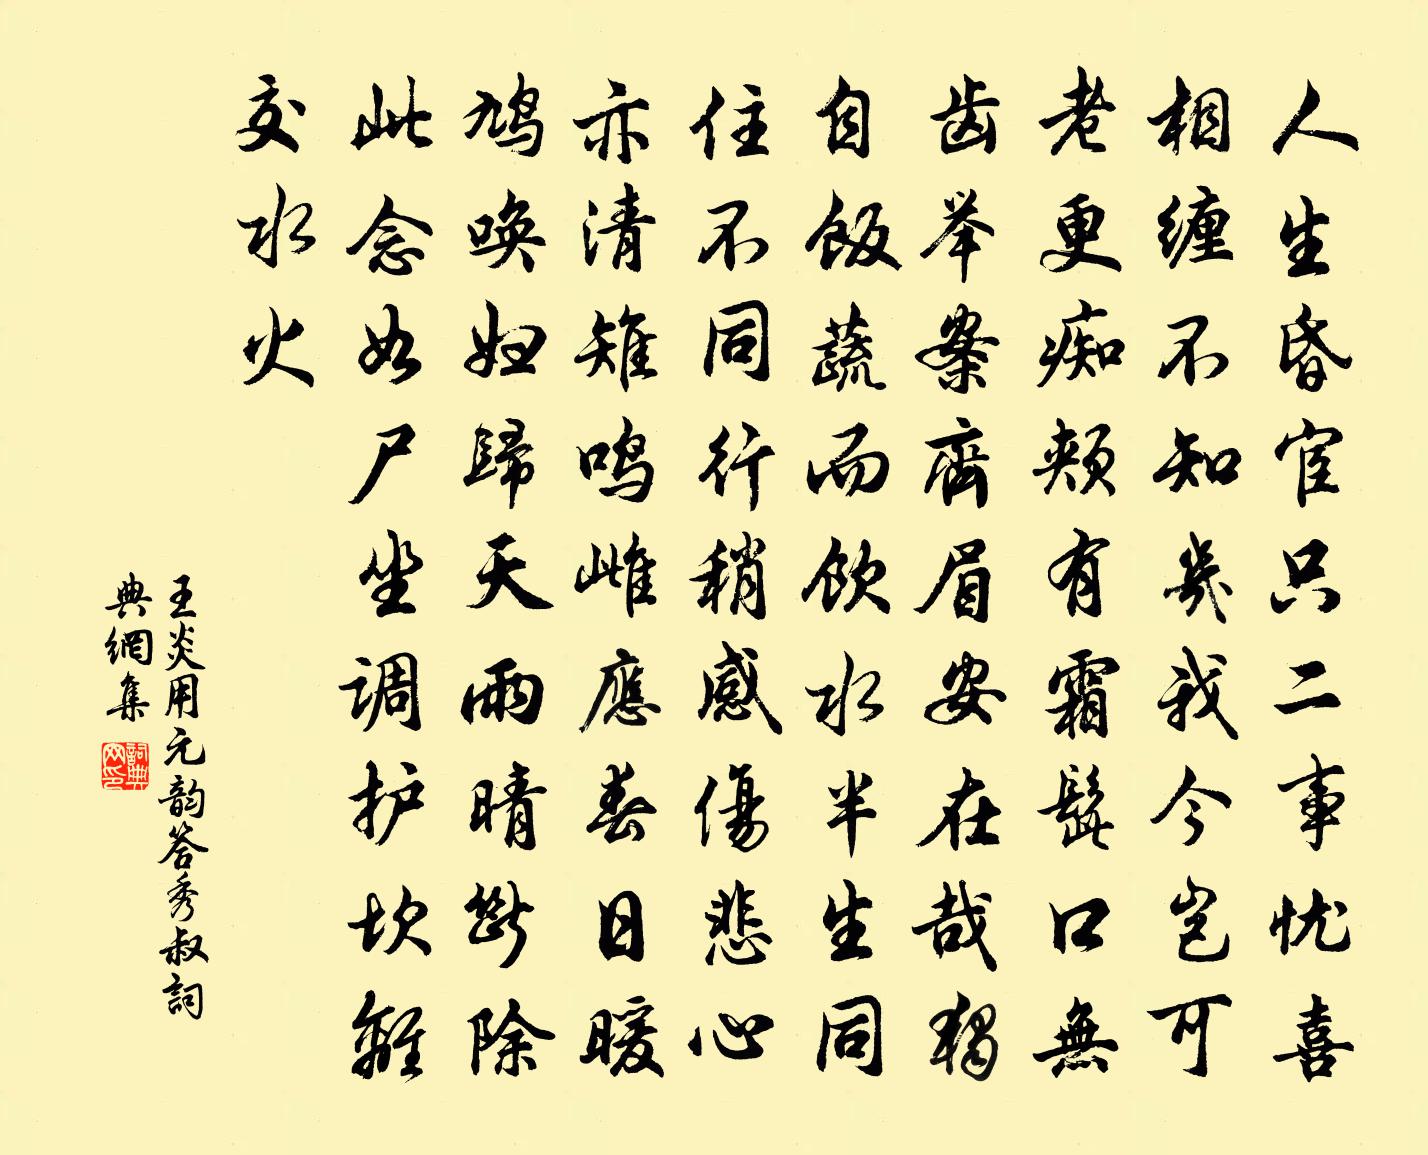 人生昏宦只二事忧喜
相缠不知幾我今岂可
老更痴颊有霜髭口無
齿举案齊眉安在哉獨
自饭蔬而饮水半生同
住不同行稍感傷悲心
亦清雉鸣雌應春日暖
鸠唤妇歸天雨晴斷除
此念如尸坐调护坎離
交水火
王炎用元韵答秀叔詞
典網集
詞典网印